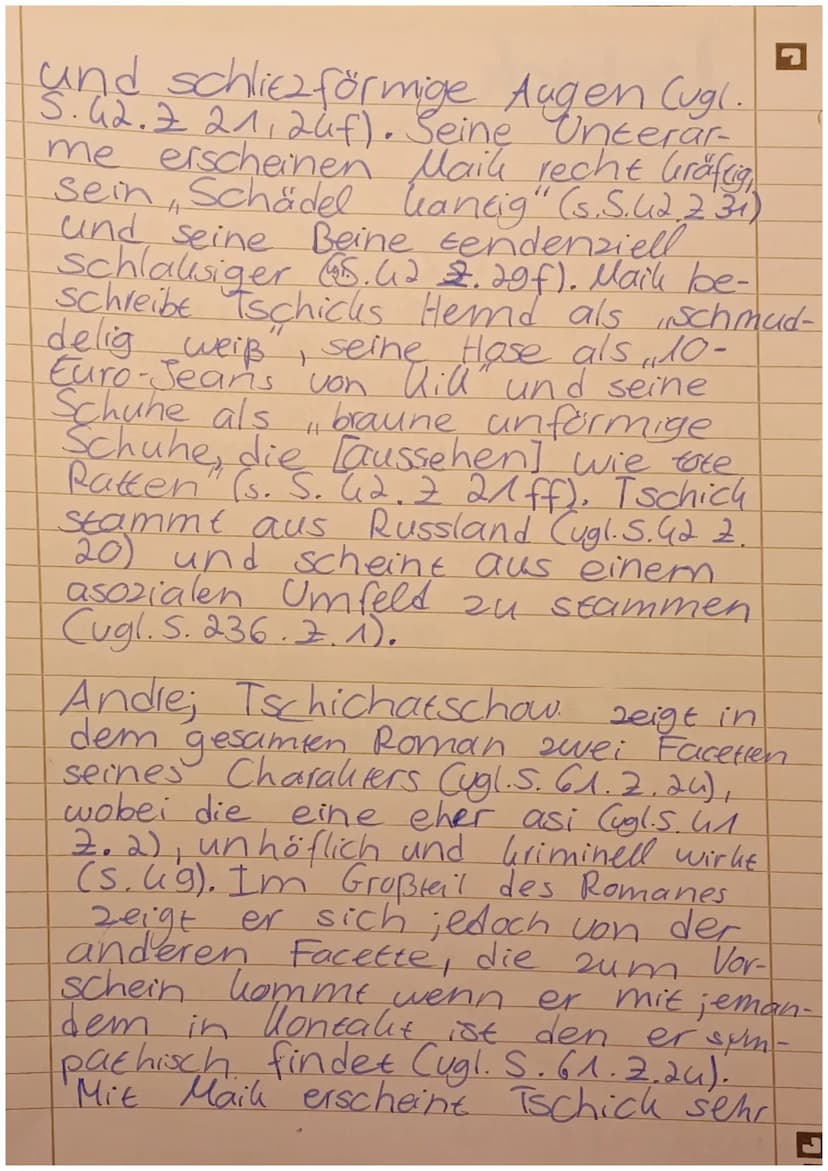 und schlitzförmige Augen (vgl.
S. 42. Z 21, 24f). Seine Unterar-
me erscheinen Maik recht kräftig,
sein „Schädel kantig" (s. S. 42. Z 31)
und seine Beine tendenziell
schlaksiger (S. 42 Z. 29f). Maik be-
schreibt Tschicks Hemd als „schmud-
delig weiß", seine Hose als „10-
Euro-Jeans von Kik" und seine
Schuhe als „braune unförmige
Schuhe, die [aussehen] wie tote
Ratten" (s. S. 42. Z 21ff). Tschick
stammt aus Russland (vgl. S. 42 Z.
20) und scheint aus einem
asozialen Umfeld zu stammen
(vgl. S. 236. Z. 1).
Andrej Tschichatschow zeigt in
dem gesamten Roman zwei Facetten
seines Charakters (vgl. S. 61. Z. 24),
wobei die eine eher asi (vgl. S. 41
Z. 2), unhöflich und kriminell wirkt
(S. 49). Im Großteil des Romanes
zeigt er sich jedoch von der
anderen Facette, die zum Vor-
schein kommt wenn er mit jeman-
dem in Kontakt ist den er sym-
pathisch findet (vgl. S. 61. Z. 24).
Mit Maik erscheint Tschick sehr